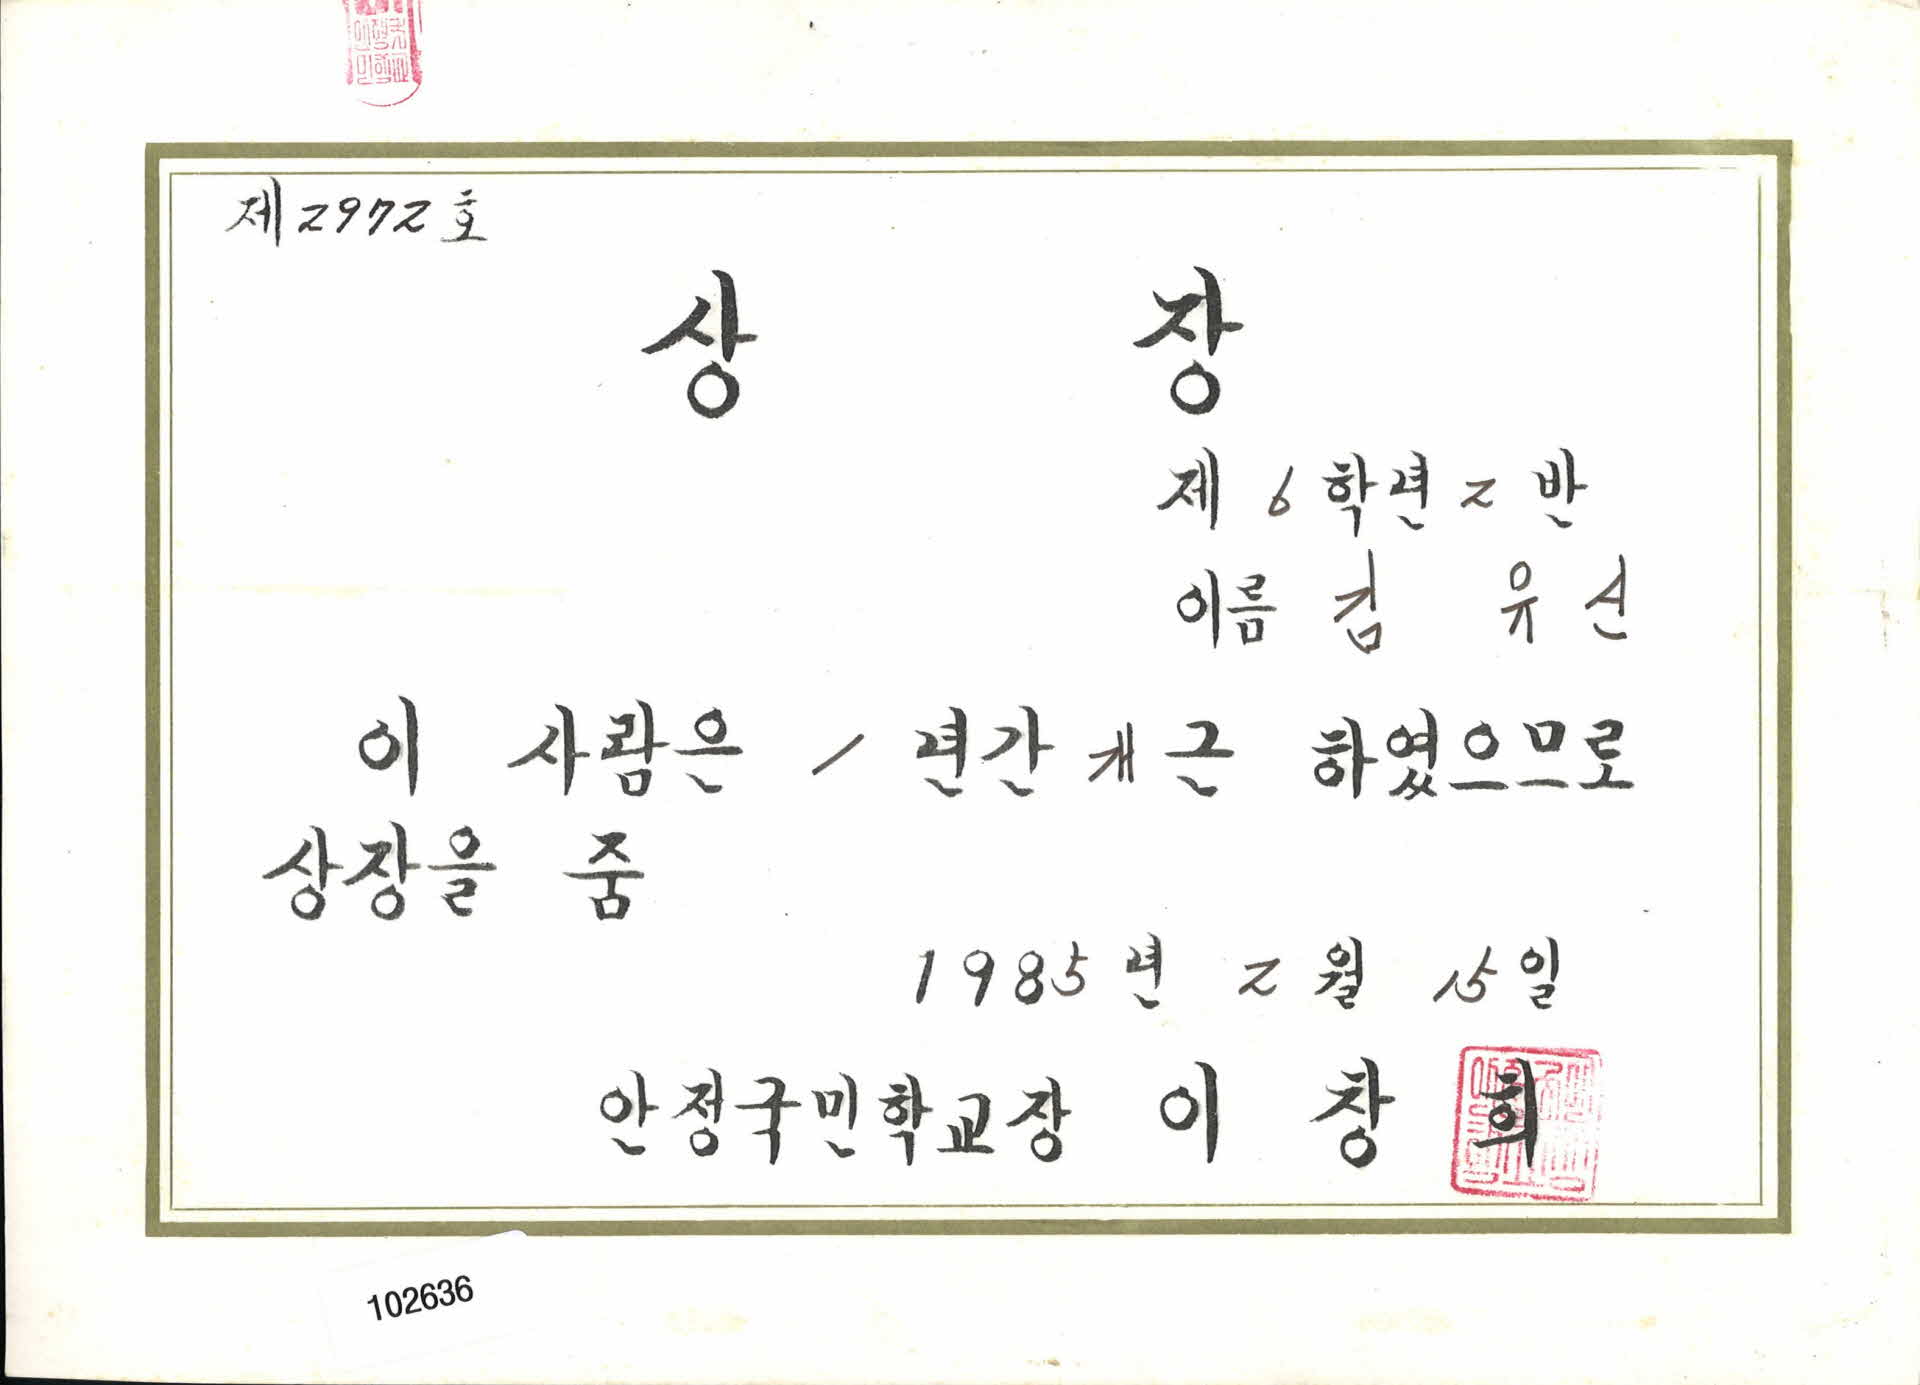 제2972호
상 장
제 6 학년 2 반
이름 김 유 신
이 사람은 1 년간 개근 하였으므로
상장을 줌
1985년 2월 15일
안정국민학교장 이 창 희
102636